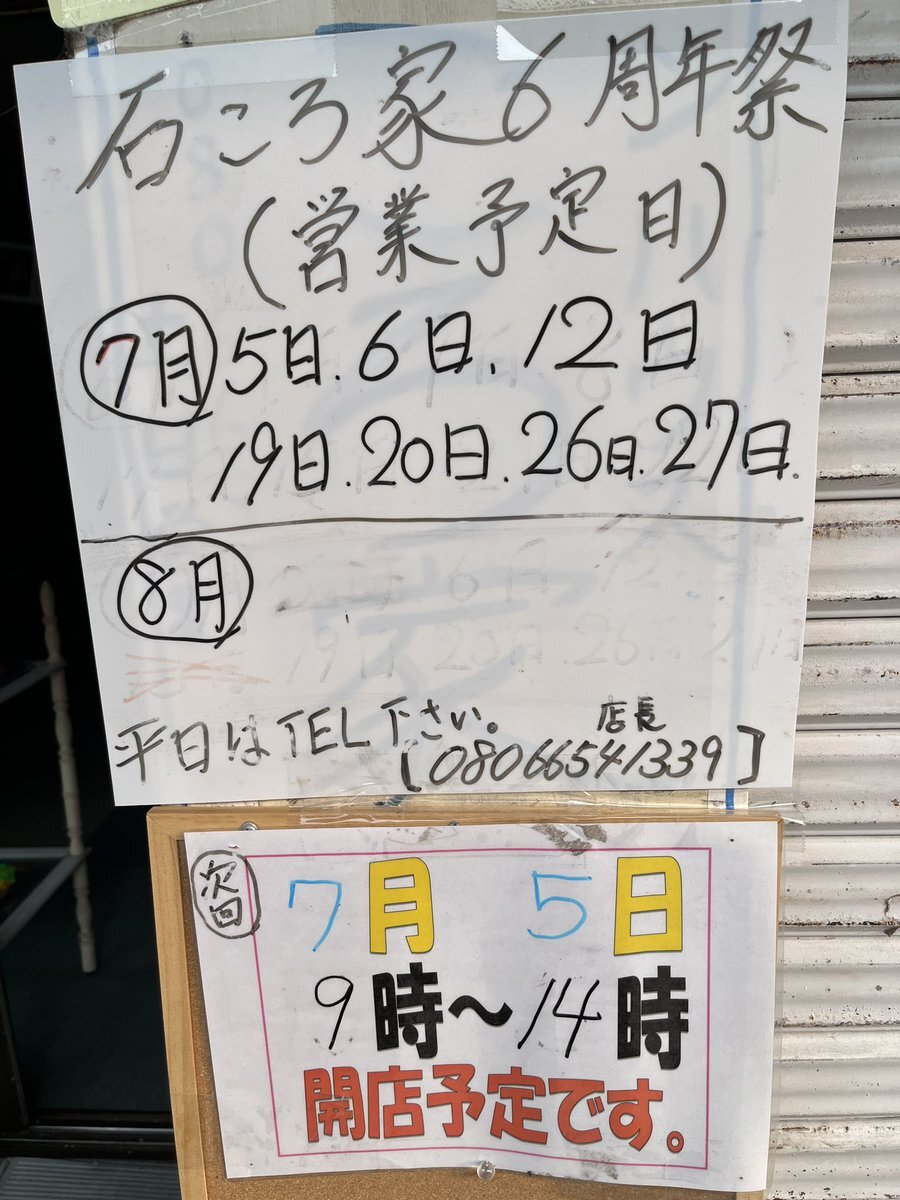 石ころ家6周年祭
(営業予定日)
7月 5日.6日.12日
19日.20日.26日.27日.
8月
平日はTEL下さい。
店長
[08066541339]
次回
7月 5日
9時〜14時
開店予定です。